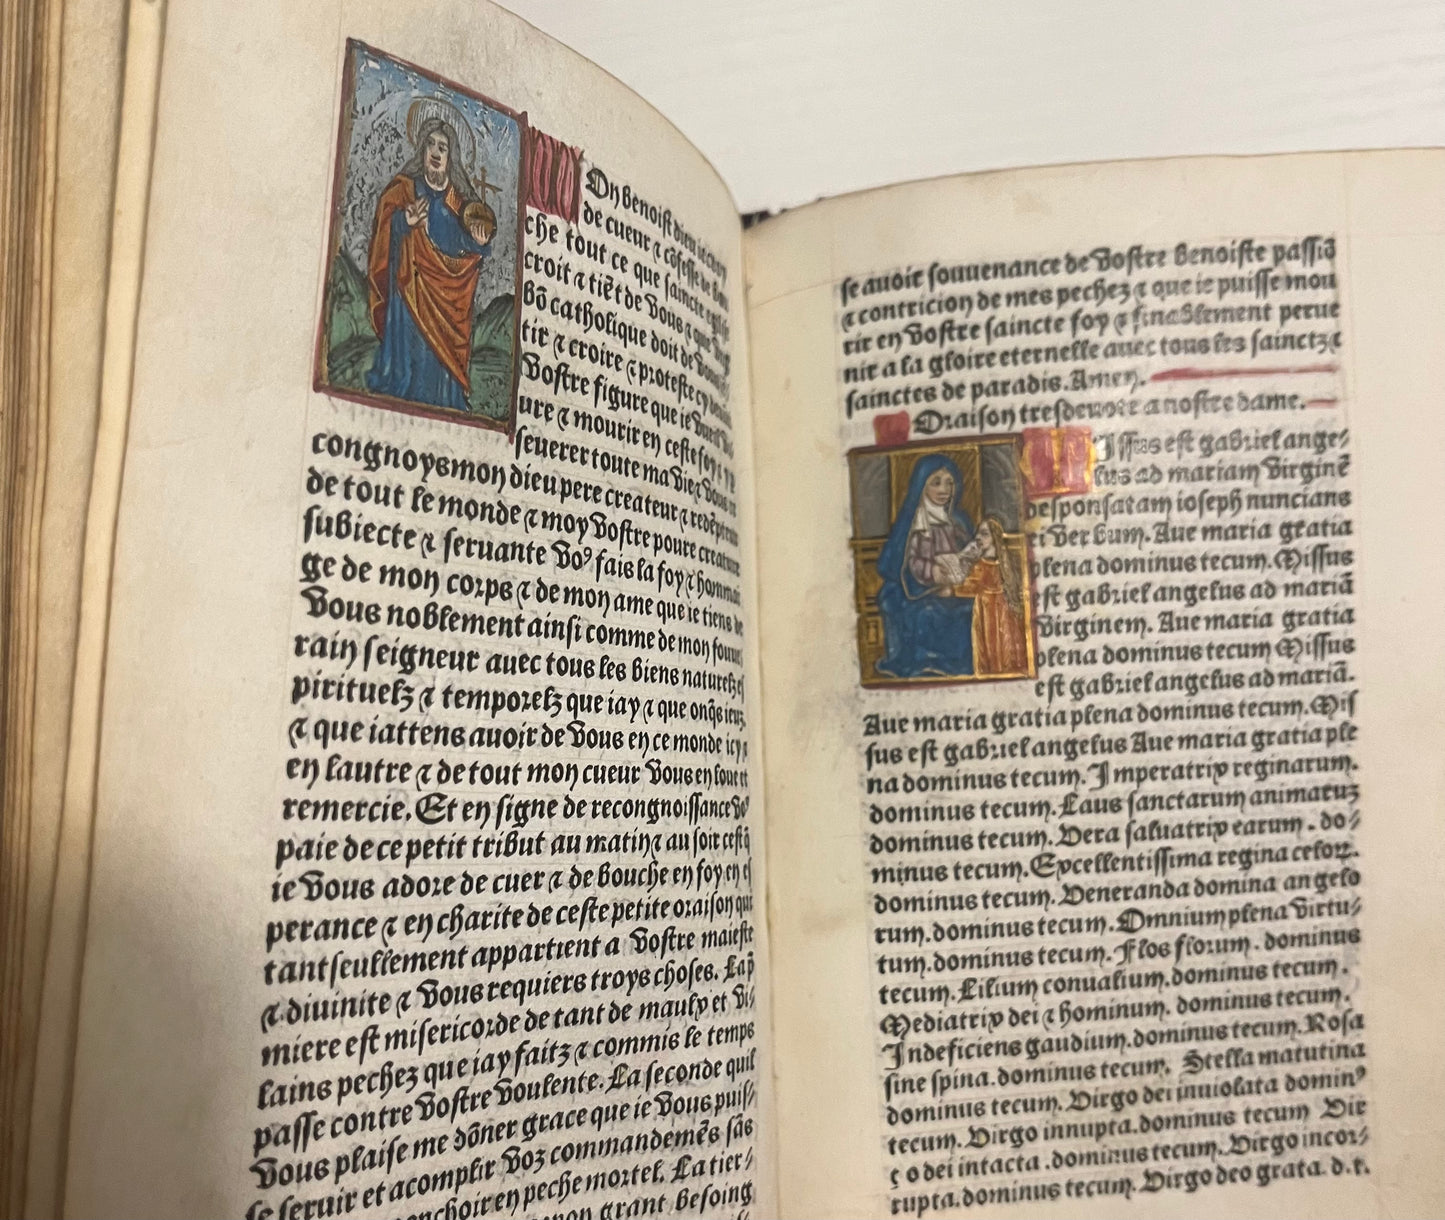 On benoist dieu ie
de cueur ⁊ cõfesse de
che tout ce que saincte eglise
croit ⁊ tiẽt de vous ⁊ que
bõ catholique doit de
tir ⁊ croire ⁊ proteste cy
vostre figure que ie vueil
ure ⁊ mourir en ceste foy
seuerer toute ma vie ⁊ vous
congnoys mon dieu pere createur ⁊
de tout le monde ⁊ moy vostre poure creature
subiecte ⁊ seruante voꝰ fais la foy ⁊ homma
ge de mon corps ⁊ de mon ame que ie tiens de
vous noblement ainsi comme de mon souue
rain seigneur auec tous les biens naturelz es
pirituelz ⁊ temporelz que iay ⁊ que onq̃s ieuz
⁊ que iattens auoir de vous en ce monde icy ⁊
en lautre ⁊ de tout mon cueur vous en loue et
remercie. Et en signe de recongnoissance voꝰ
paie de ce petit tribut au matin ⁊ au soir cest q̃
ie vous adore de cuer ⁊ de bouche en foy en es
perance ⁊ en charite de ceste petite oraison qui
tant seullement appartient a vostre maieste
⁊ diuinite ⁊ vous requiers troys choses. La p̃
miere est misericorde de tant de maulx et vi⸗
lains pechez que iay faitz ⁊ commis le temps
passe contre vostre voulente. La seconde quil
vous plaise me dõner grace que ie vous puis⸗
se seruir et acomplir voz commandemẽs sãs
encheoir en peche mortel. La tier⸗
mon grant besoing
se auoir souuenance de vostre benoiste passiõ
⁊ contricion de mes pechez ⁊ que ie puisse mou
rir en vostre saincte foy ⁊ finablement perue
nir a la gloire eternelle auec tous les sainctz ⁊
sainctes de paradis. Amen.
Oraison tresdeuote a nostre dame.
Issus est gabriel ange⸗
lus ad mariam virginẽ
desponsatam ioseph nuncians
ei verbum. Aue maria gratia
plena dominus tecum. Missus
est gabriel angelus ad mariã
virginem. Aue maria gratia
plena dominus tecum Missus
est gabriel angelus ad mariã.
Aue maria gratia plena dominus tecum. Mis
sus est gabriel angelus Aue maria gratia ple
na dominus tecum. Imperatrix reginarum.
dominus tecum. Laus sanctarum animaruꝫ
dominus tecum. Vera saluatrix earum. do⸗
minus tecum. Excellentissima regina celoꝝ.
dominus tecum. Veneranda domina angelo
rum. dominus tecum. Omnium plena virtu⸗
tum. dominus tecum. Flos florum. dominus
tecum. Lilium conualium. dominus tecum.
Mediatrix dei ⁊ hominum. dominus tecum.
Indeficiens gaudium. dominus tecum. Rosa
sine spina. dominus tecum. Stella matutina
dominus tecum. Virgo dei inuiolata dominꝰ
tecum. Virgo innupta. dominus tecum Vir
go dei intacta. dominus tecum. Virgo incor⸗
rupta. dominus tecum. Virgo deo grata. d. t.